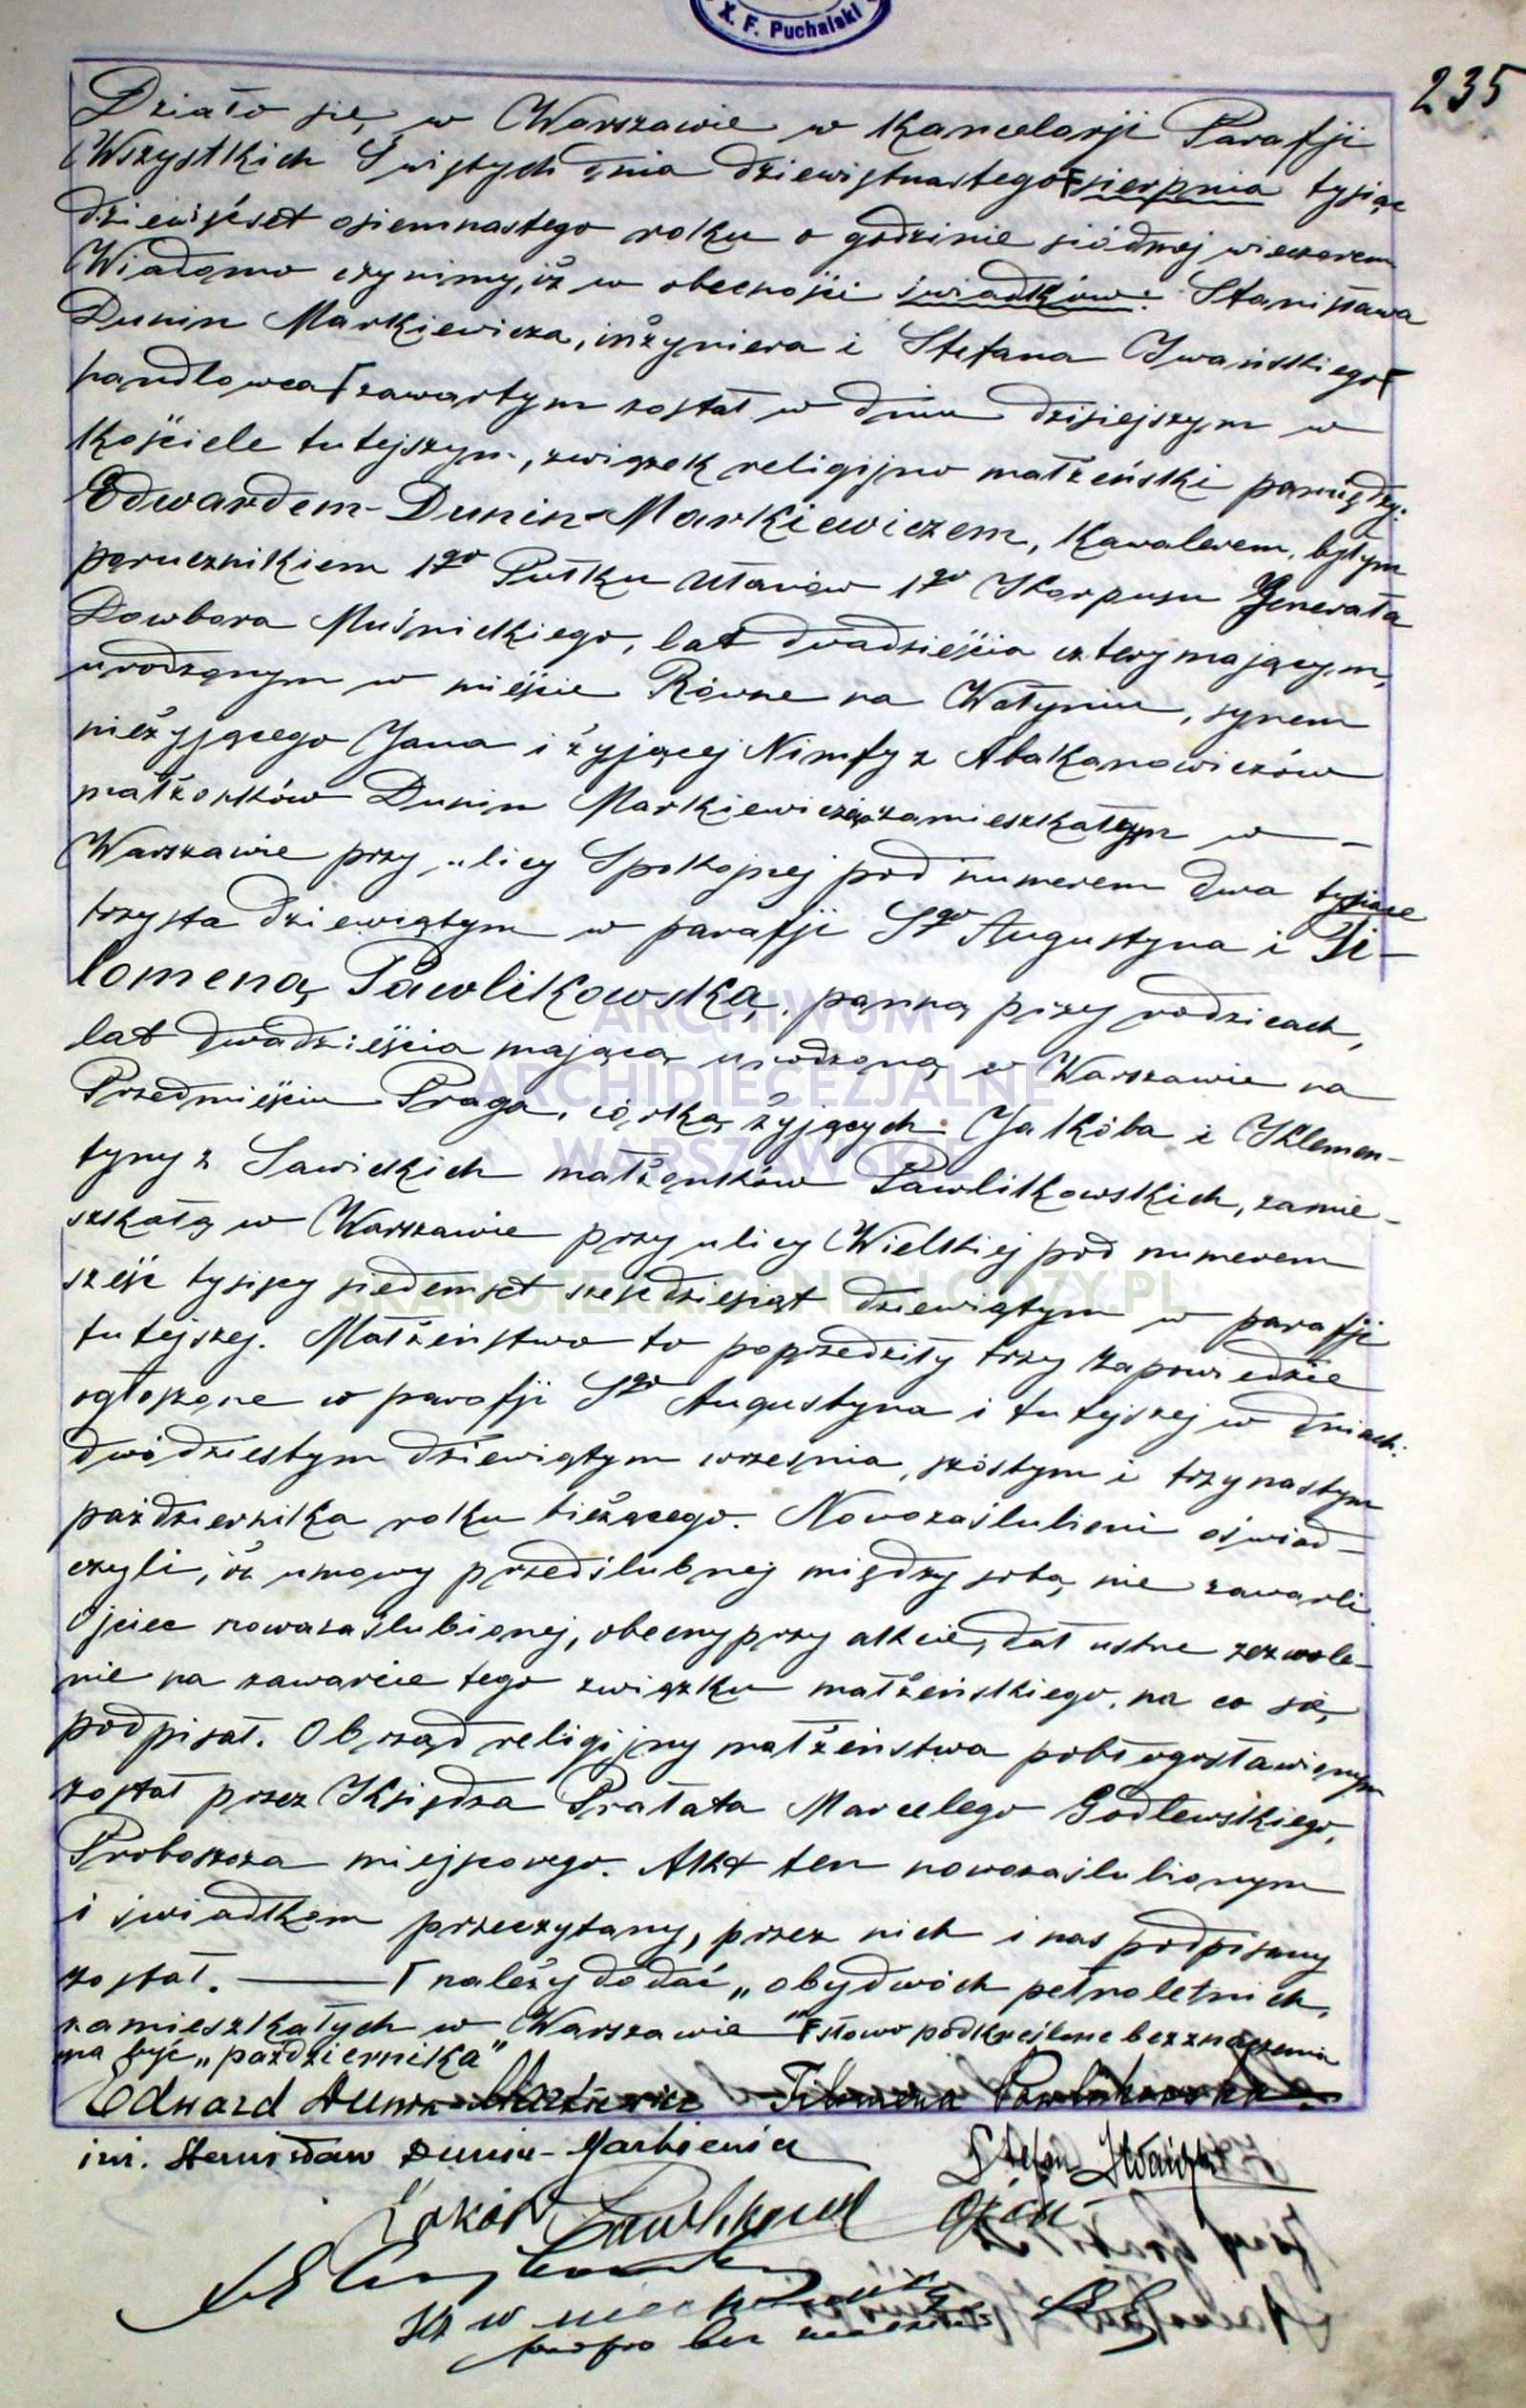 X. F. Puchalski
235
Działo się w Warszawie w Kancelarji Parafji
Wszystkich Świętych dnia dziewiętnastego sierpnia tysiąc
dziewięćset osiemnastego roku o godzinie siódmej wieczorem
Wiadomo czynimy, iż w obecności świadków: Stanisława
Dunin Markiewicza, inżyniera i Stefana Iwańskiego
handlowca zawartym został w dniu dzisiejszym w
Kościele tutejszym, związek religijno małżeński pomiędzy:
Edwardem-Dunin-Markiewiczem, Kawalerem, byłym
porucznikiem 1go Pułku Ułanów 1go Korpusu Generała
Dowbora Muśnickiego, lat dwadzieścia cztery mającym,
urodzonym w mieście Równe na Wołyniu, synem
nieżyjącego Jana i żyjącej Nimfy z Abakanowiczów
małżonków Dunin Markiewiczów zamieszkałym w —
Warszawie przy ulicy Spokojnej pod numerem dwa tysiące
trzysta dziewiątym w parafji Sgo Augustyna i Fi-
lomeną Pawlikowską, panną przy rodzicach,
lat dwadzieścia mającą urodzoną w Warszawie na
Przedmieściu Praga, córką żyjących Jakóba i Klemen-
tyny z Sawickich małżonków Pawlikowskich, zamie-
szkałą w Warszawie przy ulicy Wielkiej pod numerem
sześć tysięcy siedemset sześćdziesiąt dziewiątym w parafji
tutejszej. Małżeństwo to poprzedziły trzy zapowiedzie
ogłoszone w parafji Sgo Augustyna i tutejszej w dniach:
dwódziestym dziewiątym września, szóstym i trzynastym
października roku bieżącego. Nowozaślubieni oświad-
czyli, iż umowy przedślubnej między sobą nie zawarli
Ojciec nowozaślubionej, obecny przy akcie, dał ustne zezwole-
nie na zawarcie tego związku małżeńskiego, na co się
podpisał. Obrząd religijny małżeństwa pobłogosławionym
został przez Księdza Prałata Marcelego Godlewskiego,
Proboszcza miejscowego. Akt ten nowozaślubionym
i świadkom przeczytany, przez nich i nas podpisany
został. — należy dodać „obydwóch pełnoletnich,
zamieszkałych w Warszawie" słowo podkreślone bez znaczenia
ma być „października"
Edward Dunin-Markiewicz Filomena Pawlikowska.
inż. Stanisław Dunin-Markiewicz Stefan Iwański
Jakób Pawlikowski Ojciec
ARCHIWUM
ARCHIDIECEZJALNE
WARSZAWSKIE
SKANOTEKA.GENEALODZY.PL